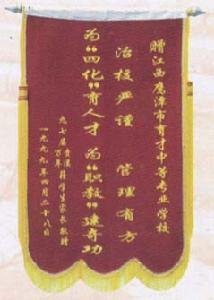 赠江西鹰潭市育才中等专业学校
治校严谨 管理有方
为“四化”育人才 为“职教”建奇功
九七届 学生家长敬赠
一九九九年四月二十八日